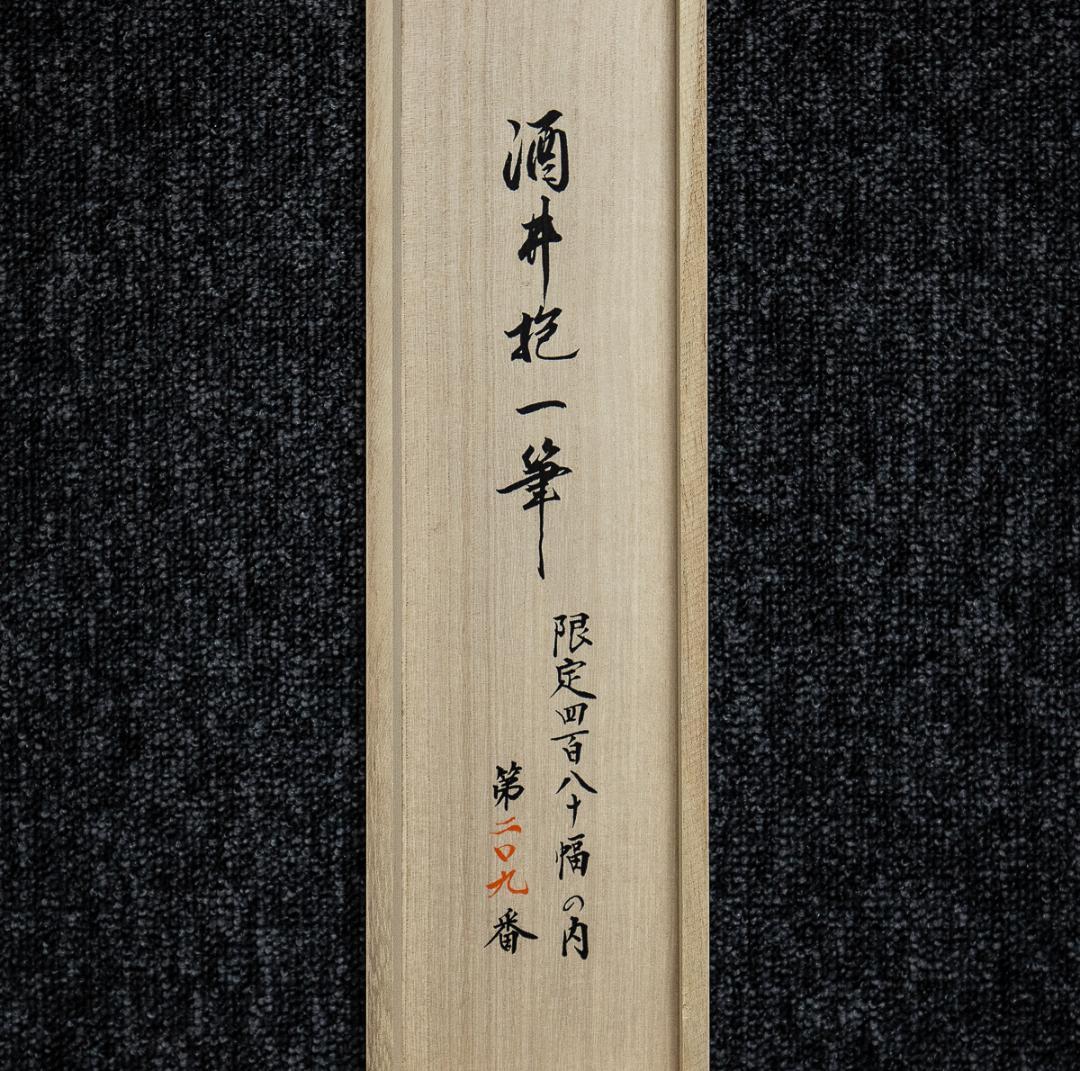 酒井抱一筆
限定四百八十幅の内
第二〇九番